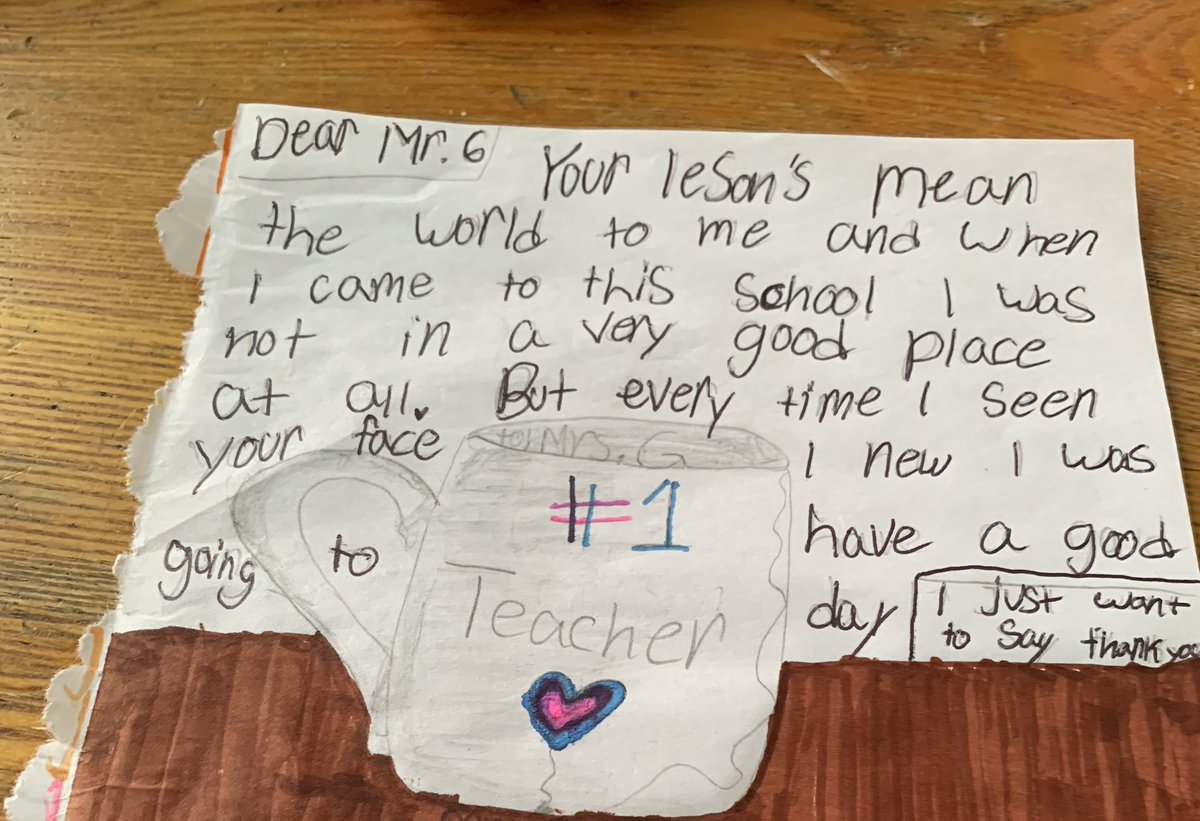 Dear Mr. G
Your leson's mean
the world to me and when
I came to this school I was
not in a very good place
at all. But every time I seen
your face I new I was
going to have a good
day
I just want
to say thank you
to Mrs. G
#1
Teacher